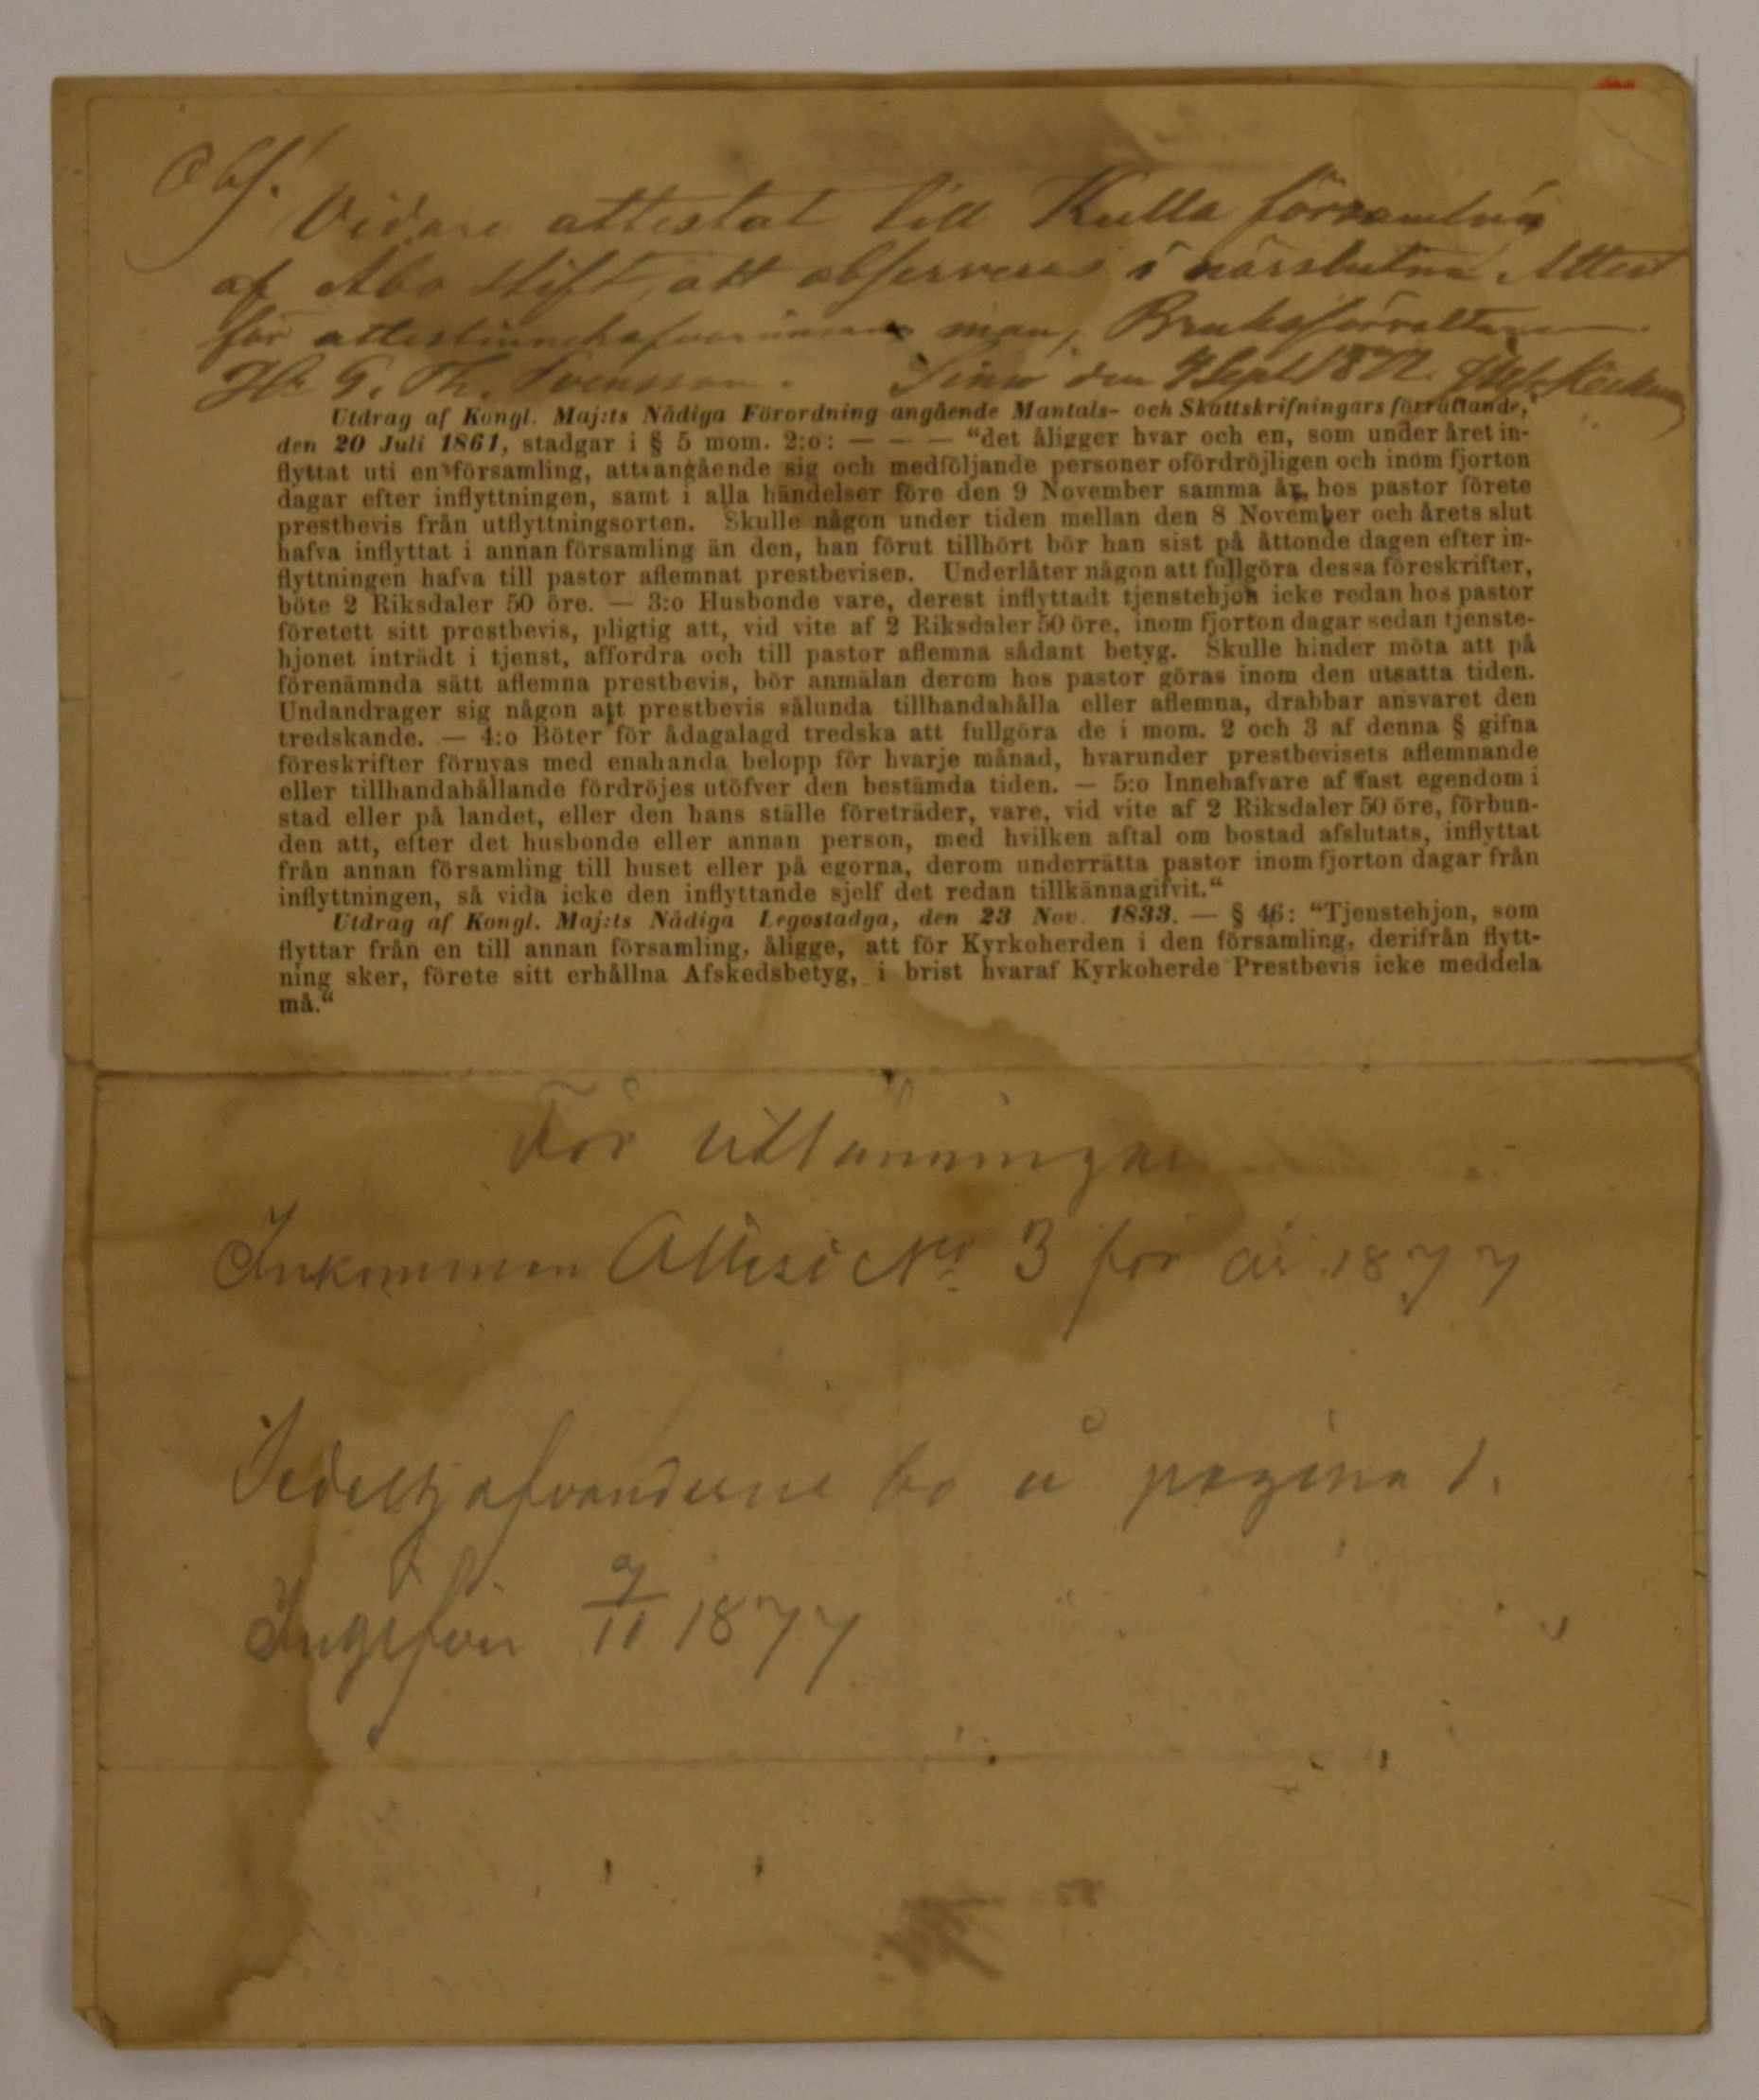 Obs!
Vidare attestat till Kulla församling
af Åbo stift, att observeras i närslutna Attest
för attestinnehafvarinnans man, Bruksförvaltaren
Hr G. Th. Svensson. den 7 Sept 1872.
Utdrag af Kongl. Maj:ts Nådiga Förordning angående Mantals- och Skattskrifningars förrättande,
den 20 Juli 1861, stadgar i § 5 mom. 2:o: — — — “det åligger hvar och en, som under året in-
flyttat uti en församling, att angående sig och medföljande personer ofördröjligen och inom fjorton
dagar efter inflyttningen, samt i alla händelser före den 9 November samma år, hos pastor förete
prestbevis från utflyttningsorten. Skulle någon under tiden mellan den 8 November och årets slut
hafva inflyttat i annan församling än den, han förut tillhört bör han sist på åttonde dagen efter in-
flyttningen hafva till pastor aflemnat prestbevisen. Underlåter någon att fullgöra dessa föreskrifter,
böte 2 Riksdaler 50 öre. — 3:o Husbonde vare, derest inflyttadt tjenstehjon icke redan hos pastor
företett sitt prestbevis, pligtig att, vid vite af 2 Riksdaler 50 öre, inom fjorton dagar sedan tjenste-
hjonet inträdt i tjenst, affordra och till pastor aflemna sådant betyg. Skulle hinder möta att på
förenämnda sätt aflemna prestbevis, bör anmälan derom hos pastor göras inom den utsatta tiden.
Undandrager sig någon att prestbevis sålunda tillhandahålla eller aflemna, drabbar ansvaret den
tredskande. — 4:o Böter för ådagalagd tredska att fullgöra de i mom. 2 och 3 af denna § gifna
föreskrifter förnyas med enahanda belopp för hvarje månad, hvarunder prestbevisets aflemnande
eller tillhandahållande fördröjes utöfver den bestämda tiden. — 5:o Innehafvare af fast egendom i
stad eller på landet, eller den hans ställe företräder, vare, vid vite af 2 Riksdaler 50 öre, förbun-
den att, efter det husbonde eller annan person, med hvilken aftal om bostad afslutats, inflyttat
från annan församling till huset eller på egorna, derom underrätta pastor inom fjorton dagar från
inflyttningen, så vida icke den inflyttande sjelf det redan tillkännagifvit.“
Utdrag af Kongl. Maj:ts Nådiga Legostadga, den 23 Nov. 1833. — § 46: “Tjenstehjon, som
flyttar från en till annan församling, åligge, att för Kyrkoherden i den församling, derifrån flytt-
ning sker, förete sitt erhållna Afskedsbetyg, i brist hvaraf Kyrkoherde Prestbevis icke meddela
må.“
För utlänningar
Inkommen Attest No 3 för år 1877
Sedelhafvanderne bo å pagina 1.
Ingifven 9/11 1877